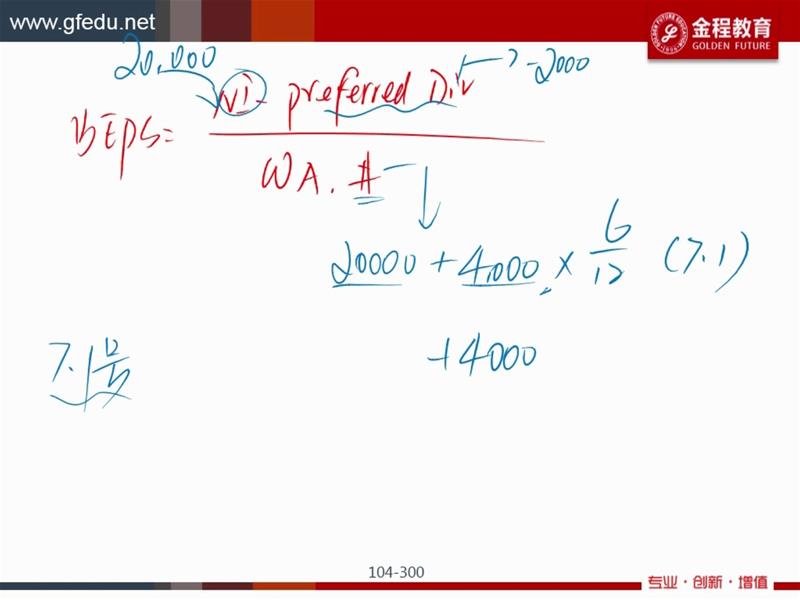 www.gfedu.net
金程教育
GOLDEN FUTURE
20,000
-2000
BEPS = NI - preferred Div
WA. #
20000 + 4,000 × 6/12 (7.1)
7.1号
+4000
104-300
专业·创新·增值